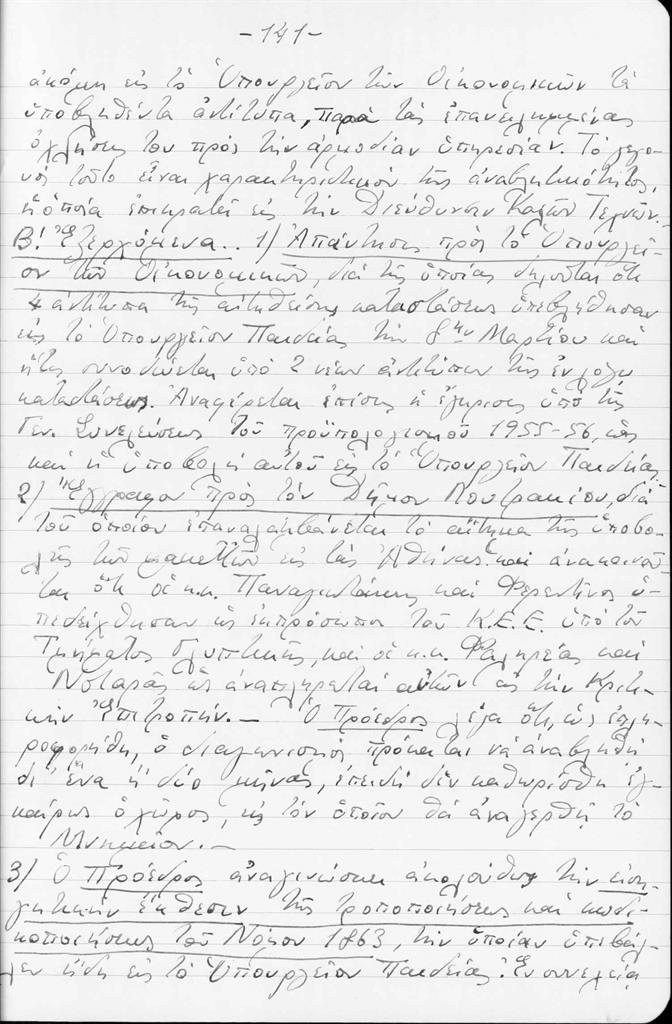 -141-
ἀκόμη εἰς τὸ Ὑπουργεῖον τῶν Οἰκονομικῶν τὰ
ὑποβληθέντα ἀντίτυπα, παρὰ τὰς ἐπανειλημμένας
ὀχλήσεις του πρὸς τὴν ἁρμοδίαν ὑπηρεσίαν. Τὸ γεγο-
νὸς τοῦτο εἶναι χαρακτηριστικὸν τῆς ἀναβλητικότητος,
ἡ ὁποία ἐπικρατεῖ εἰς τὴν Διεύθυνσιν Καλῶν Τεχνῶν.
Β! Ἐξερχόμενα.. 1) Ἀπάντησις πρὸς τὸ Ὑπουργεῖ-
ον τῶν Οἰκονομικῶν, διὰ τῆς ὁποίας δηλοῦται ὅτι
4 ἀντίτυπα τῆς αἰτηθείσης καταστάσεως ὑπεβλήθησαν
εἰς τὸ Ὑπουργεῖον Παιδείας τὴν 8ην Μαρτίου καὶ
ἥτις συνοδεύεται ὑπὸ 2 νέων ἀντιτύπων τῆς ἐν λόγῳ
καταστάσεως. Ἀναφέρεται ἐπίσης ἡ ἔγκρισις ὑπὸ τῆς
Γεν. Συνελεύσεως τοῦ προϋπολογισμοῦ 1955-56, ὡς
καὶ ἡ ὑποβολὴ αὐτοῦ εἰς τὸ Ὑπουργεῖον Παιδείας.
2) Ἔγγραφον πρὸς τὸν Δῆμον Λουτρακίου, διὰ
τοῦ ὁποίου ἐπαναλαμβάνεται τὸ αἴτημα τῆς ὑποβο-
λῆς τῶν μακεττῶν εἰς τὰς Ἀθήνας καὶ ἀνακοινοῦ-
ται ὅτι οἱ κ.κ. Παναγιωτάκης καὶ Φερεντῖνος ὑ-
πεδείχθησαν ὡς ἐκπρόσωποι τοῦ Κ.Ε.Ε. ὑπὸ τοῦ
Τμήματος Γλυπτικῆς, καὶ οἱ κ.κ. Φαληρέας καὶ
Νοταρᾶς ὡς ἀναπληρωταὶ αὐτῶν εἰς τὴν Κριτι-
κὴν Ἐπιτροπήν.— Ὁ Πρόεδρος λέγει ὅτι, ὡς ἐπλη-
ροφορήθη, ὁ διαγωνισμὸς πρόκειται νὰ ἀναβληθῇ
δι' ἕνα ἢ δύο μῆνας, ἐπειδὴ δὲν καθωρίσθη ἐγ-
καίρως ὁ χῶρος, εἰς τὸν ὁποῖον θὰ ἀνεγερθῇ τὸ
Μνημεῖον.—
3) Ὁ Πρόεδρος ἀναγινώσκει ἀκολούθως τὴν εἰση-
γητικὴν ἔκθεσιν τῆς τροποποιήσεως καὶ κωδι-
κοποιήσεως τοῦ Νόμου 1863, τὴν ὁποίαν ὑπέβαλ-
λεν ἤδη εἰς τὸ Ὑπουργεῖον Παιδείας. Ἐν συνεχείᾳ